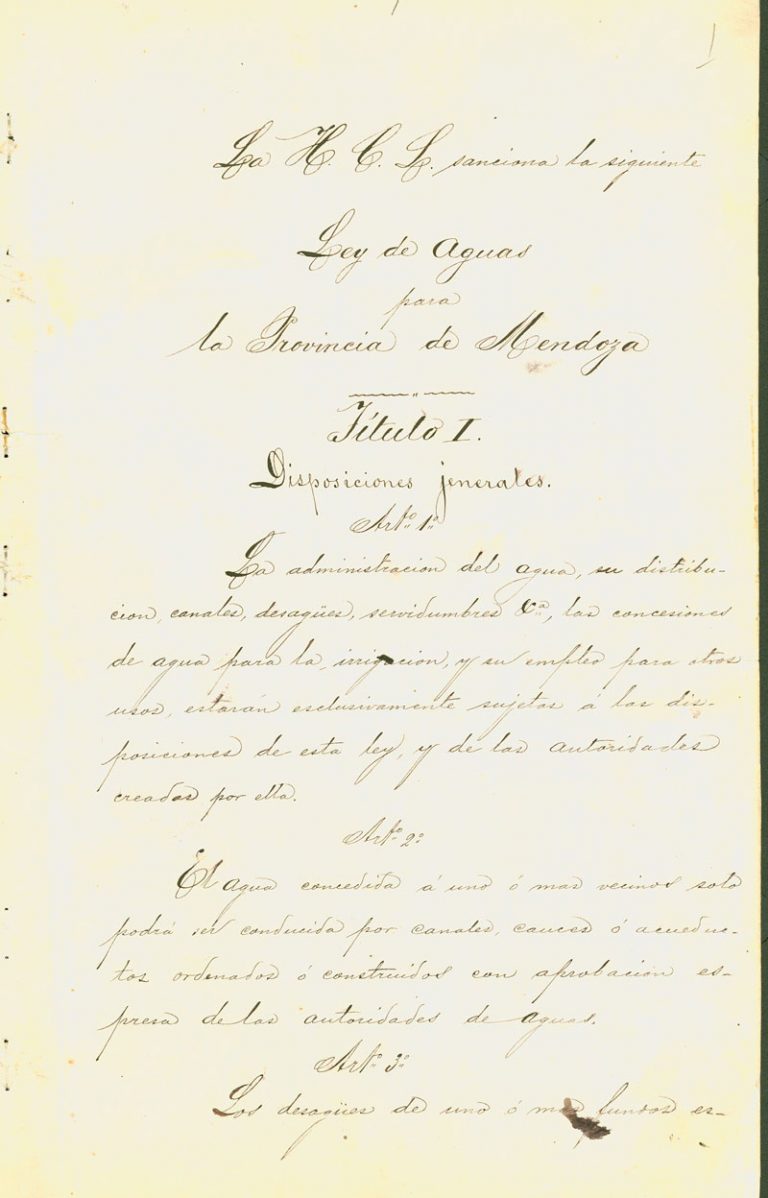 1
La H. C. L. sanciona la siguiente
Ley de Aguas
para
la Provincia de Mendoza
Título I.
Disposiciones jenerales.
Arto. 1o.
La administracion del agua, su distribu-
cion, canales, desagües, servidumbres &a., las concesiones
de agua para la irrigacion, y su empleo para otros
usos, estarán esclusivamente sujetas á las dis-
posiciones de esta ley, y de las autoridades
creadas por ella.
Arto. 2o.
El agua concedida á uno ó mas vecinos solo
podrá ser conducida por canales, cauces ó acueduc-
tos ordenados ó construidos con aprobacion es-
presa de las autoridades de aguas.
Arto. 3o.
Los desagües de uno ó mas fundos es-